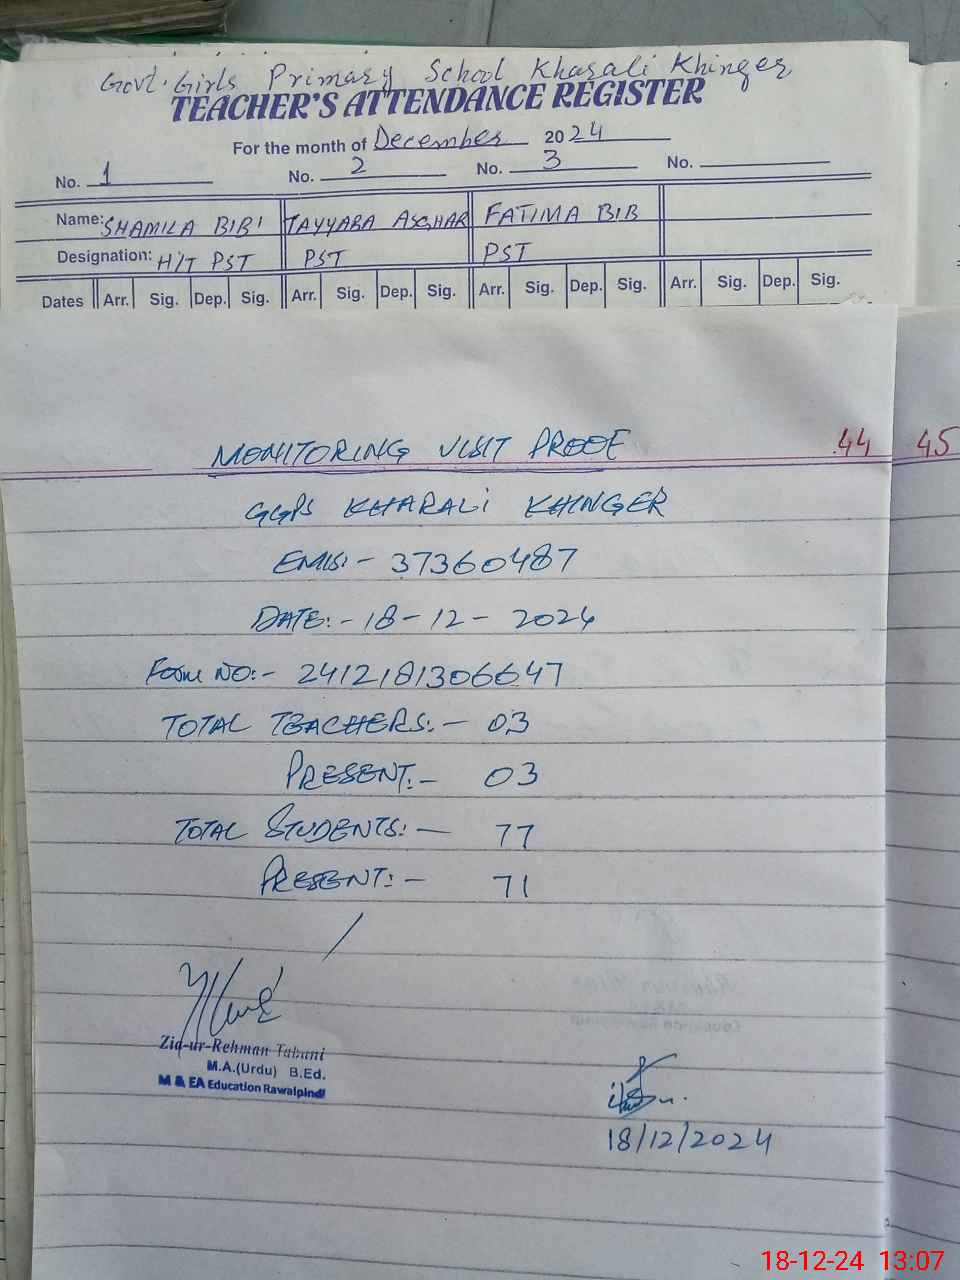 Govt. Girls Primary School Kharali Khinger
TEACHER'S ATTENDANCE REGISTER
For the month of December 2024
No. 1 No. 2 No. 3 No.
Name: SHAMILA BIBI TAYYABA ASGHAR FATIMA BIB
Designation: H/T PST PST PST
Dates Arr. Sig. Dep. Sig. Arr. Sig. Dep. Sig. Arr. Sig. Dep. Sig. Arr. Sig. Dep. Sig.
MONITORING VISIT PROOF 44 45
GGPS KHARALI KHINGER
EMIS:- 37360487
DATE:- 18-12-2024
Form NO:- 2412181306647
TOTAL TEACHERS:- 03
PRESENT:- 03
TOTAL STUDENTS:- 77
PRESENT:- 71
Zia-ur-Rehman Tabani
M.A.(Urdu) B.Ed.
M & EA Education Rawalpindi
18/12/2024
18-12-24 13:07